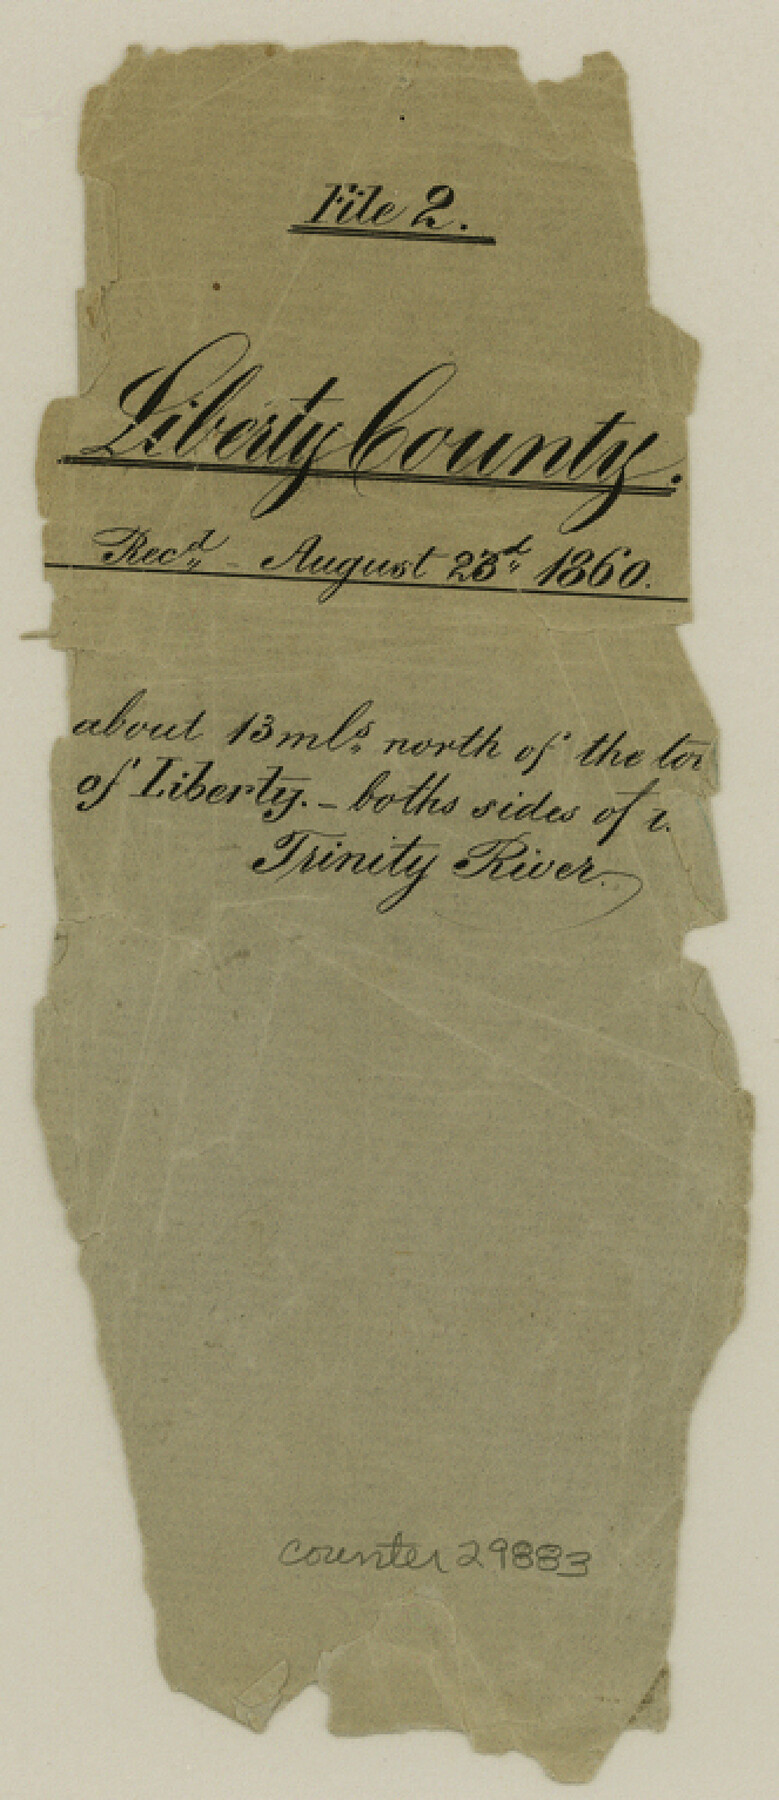 File 2.
Liberty County.
Rec'd - August 23d 1860.
about 13 mls north of the
of Liberty. - boths sides of
Trinity River.
counter 29883